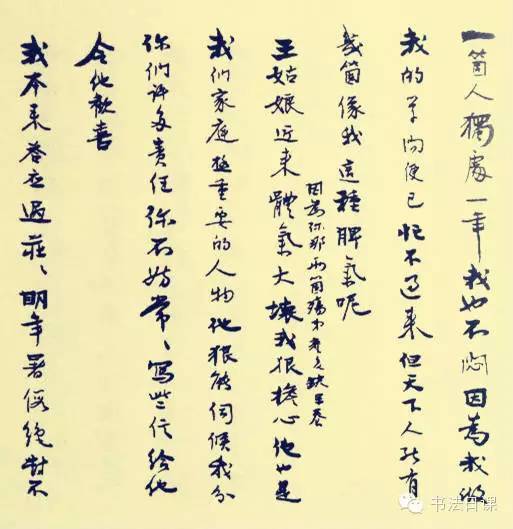 一箇人獨處一年我也不悶因為我做
我的學問便已忙不過來但天下人能有
幾箇像我這種脾氣呢
王姑娘近來體氣大壞我狠擔心他也是
因為你那兩箇殤弟產後缺保養
我們家庭極重要的人物他狠能伺候我分
你們許多責任你不妨常、寫些信給他
令他歡喜
我本來答應過莊、明年暑假絕對不
书法日课